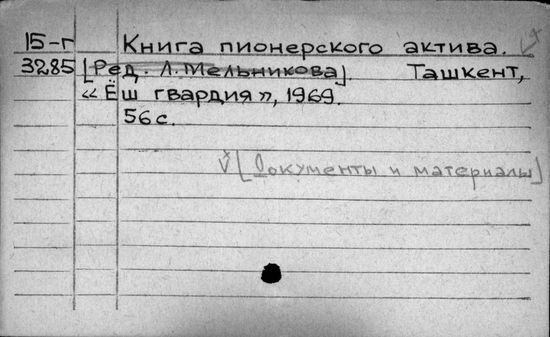 15-г Книга пионерского актива.
3285 [Ред. Л. Мельникова]. Ташкент,
„Ёш гвардия”, 1969.
56 с.
[Документы и материалы]